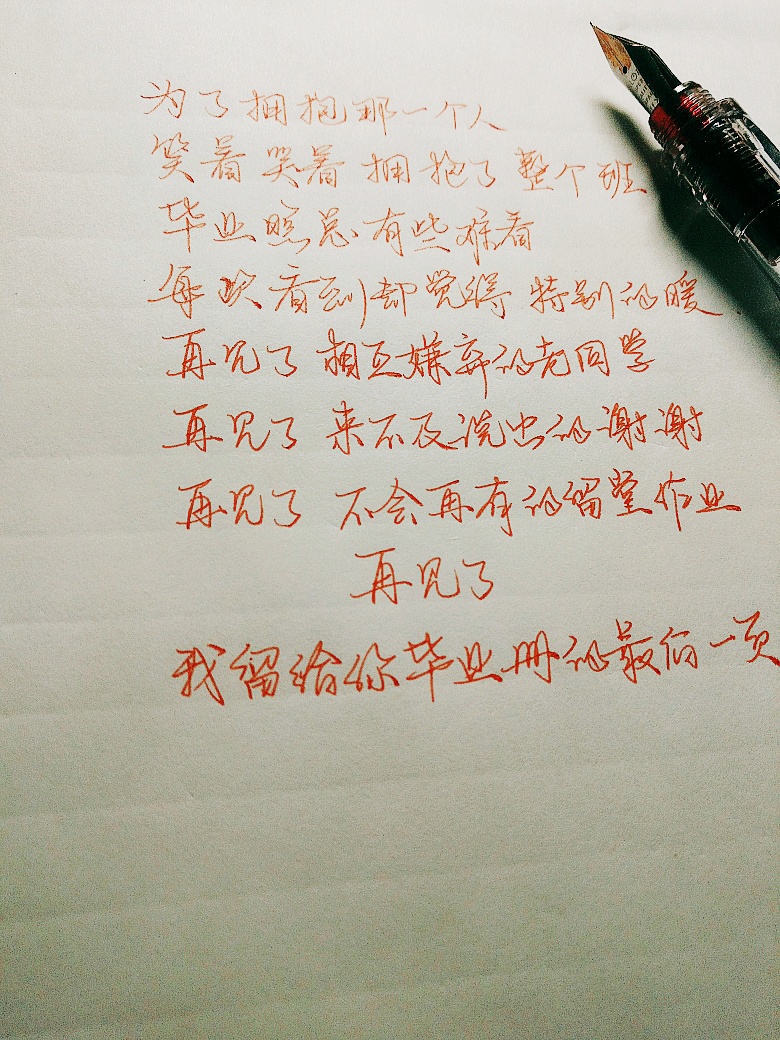 为了拥抱那一个人
笑着哭着 拥抱了 整个班
毕业照总有些难看
每次看到却觉得 特别的暖
再见了 相互嫌弃的老同学
再见了 来不及说出的谢谢
再见了 不会再有的留堂作业
再见了
我留给你毕业册的最后一页